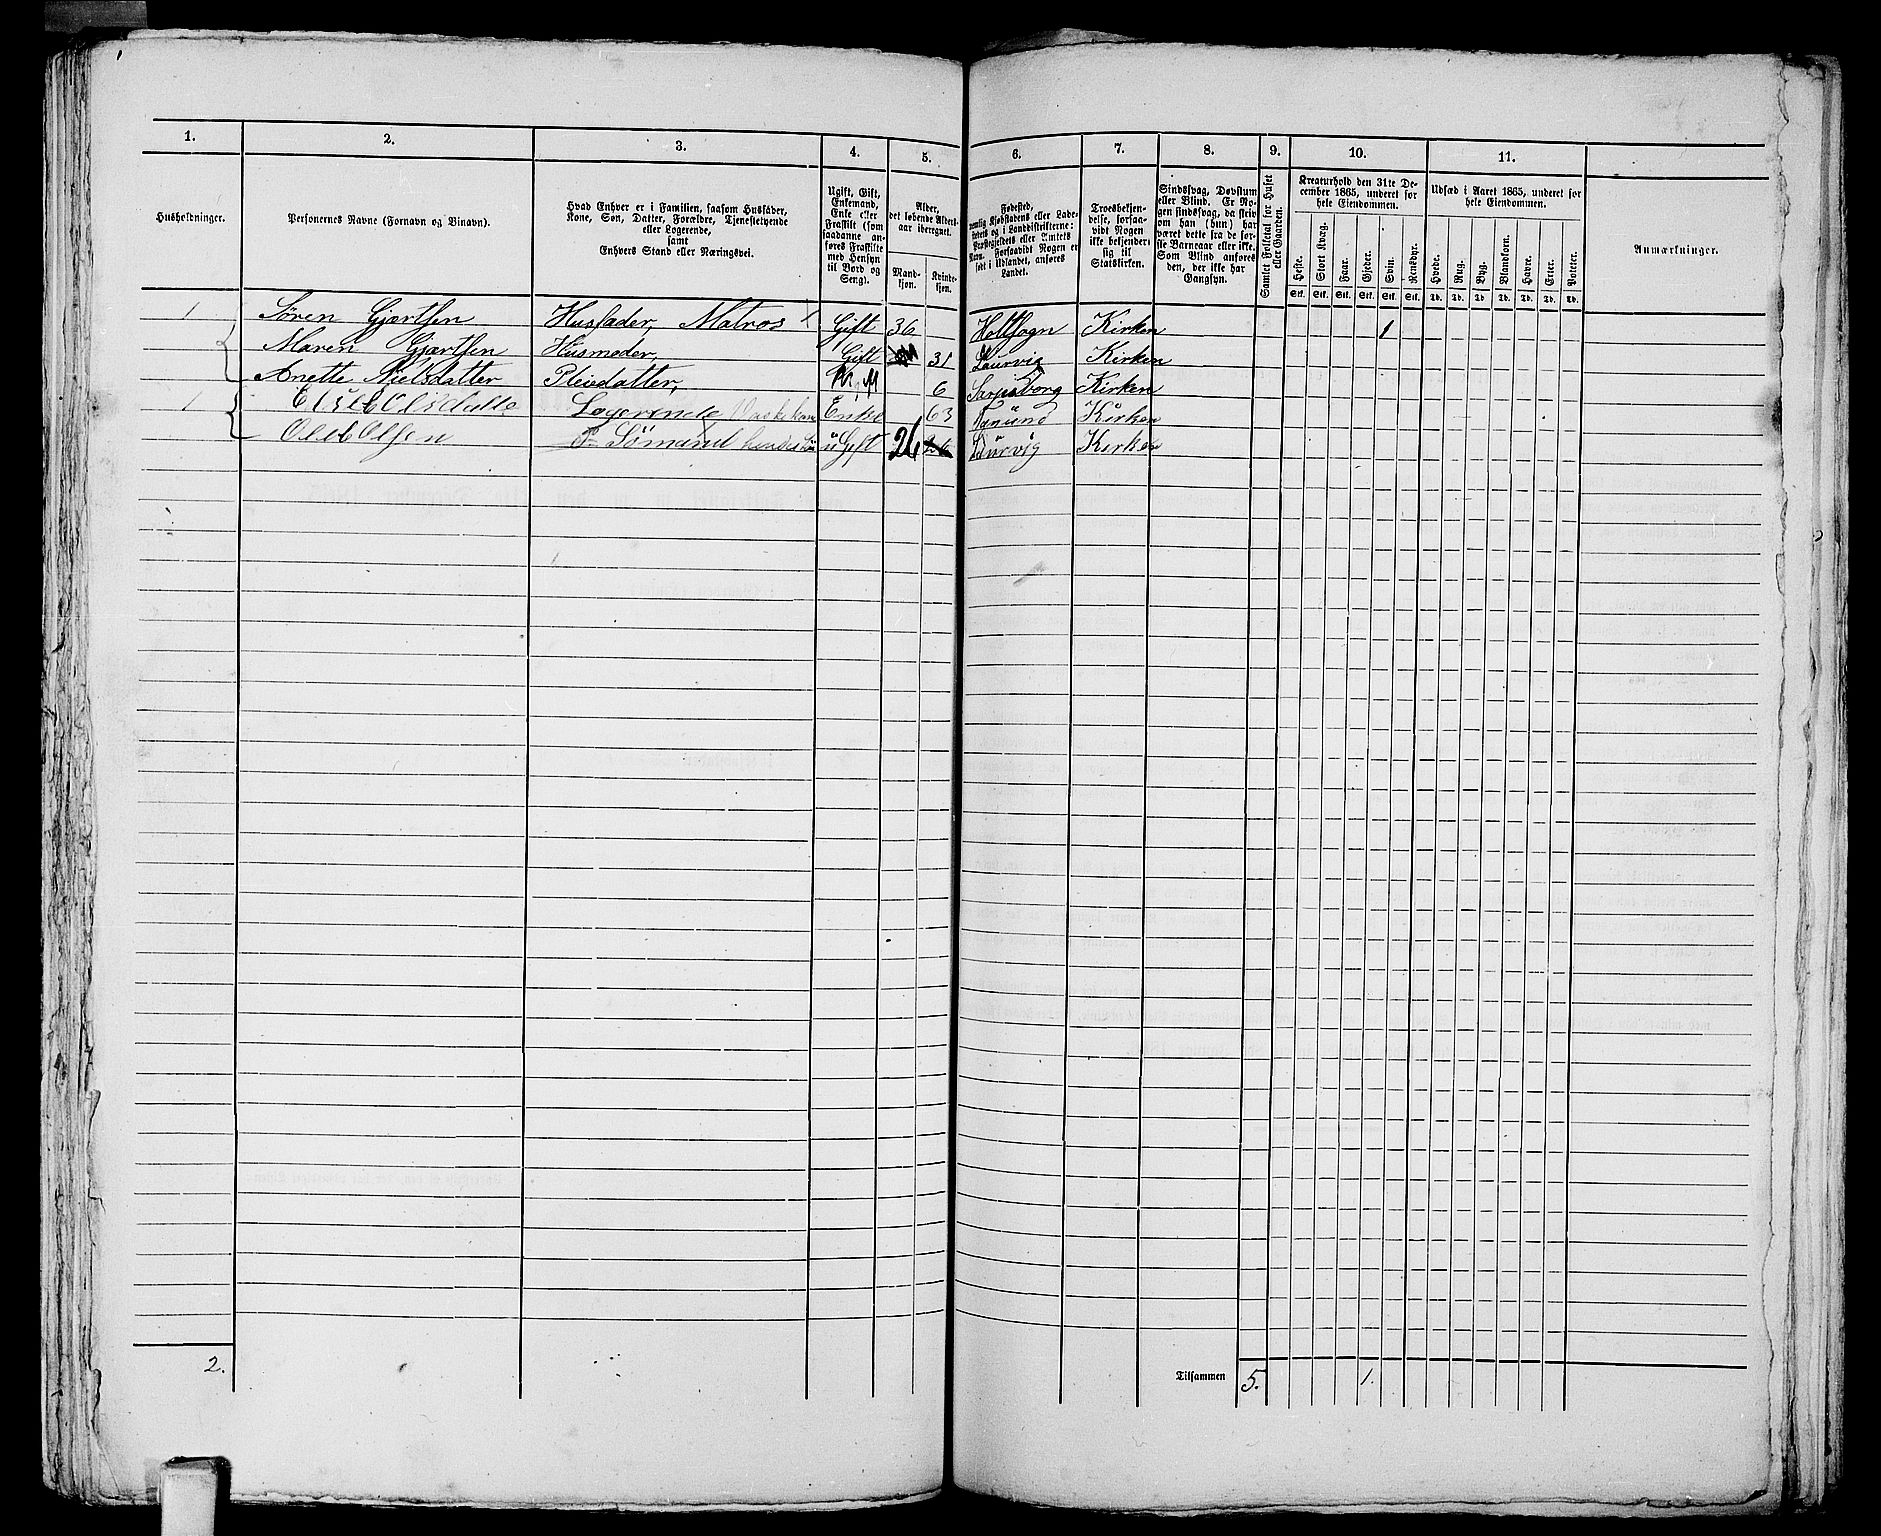 1. 2. 3. 4. 5. 6. 7. 8. 9. 10. 11.
Husholdninger.
Personernes Navne (Fornavn og Binavn).
Hvad Enhver er i Familien, saasom Husfader,
Kone, Søn, Datter, Forældre, Tjenestetyende
eller Logerende,
samt
Enhvers Stand eller Næringsvei.
Ugift, Gift,
Enkemand,
Enke eller
Fraskilt (som
saadanne an-
føres Fraskilte
med Hensyn
til Bord og
Seng).
Alder,
det løbende Alders-
aar iberegnet.
Mand-
kjøn.
Kvinde-
kjøn.
Fødested,
nemlig Kjøbstadens eller Lade-
stedets og i Landdistrikterne:
Præstegjeldets eller Amtets
Navn. Forsaavidt Nogen er
født i Udlandet, anføres
Landet.
Troesbekjen-
delse, forsaa-
vidt Nogen
ikke bekjender
sig til
Statskirken.
Sindssvag, Døvstum
eller Blind. Er No-
gen sindssvag, da skriv
om han (hun) har
været dette fra de før-
ste Barneaar eller ikke.
Som Blind anføres
den, der ikke har
Gangsyn.
Samlet Folketal for Huset
eller Gaarden.
Kreaturhold den 31te De-
cember 1865, underet for
hele Eiendommen.
Heste. Stort Kvæg. Faar. Gjeder. Svin. Rensdyr.
Stk. Stk. Stk. Stk. Stk. Stk.
Udsæd i Aaret 1865, underet for
hele Eiendommen.
Hvede. Rug. Byg. Blandkorn. Havre. Erter. Poteter.
Td. Td. Td. Td. Td. Td. Td.
Anmærkninger.
1 Søren Gjertsen Husfader, Matros 1 Gift 36 Holt sogn Kirken 1
Maren Gjertsen Husmoder, Gift 31 Laurvig Kirken
Anette Nielsdatter Pleiedatter, 6 Sarpsborg Kirken
1 Logerende Vaskekone Enke 63 Kirken
Ole Olsen Sømand hendes Søn uGift 26 Laurvig Kirken
2. Tilsammen 5. 1.